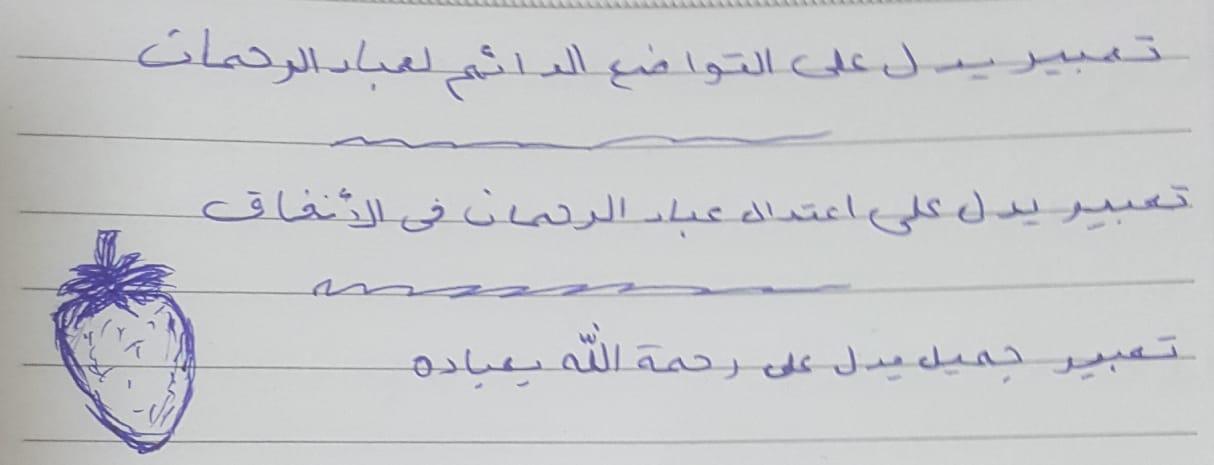 تعبير يدل على التواضع الدائم لعباد الرحمان
تعبير يدل على اعتدال عباد الرحمان فى الأنفاق
تعبير جميل يدل على رحمة اللّه بعباده